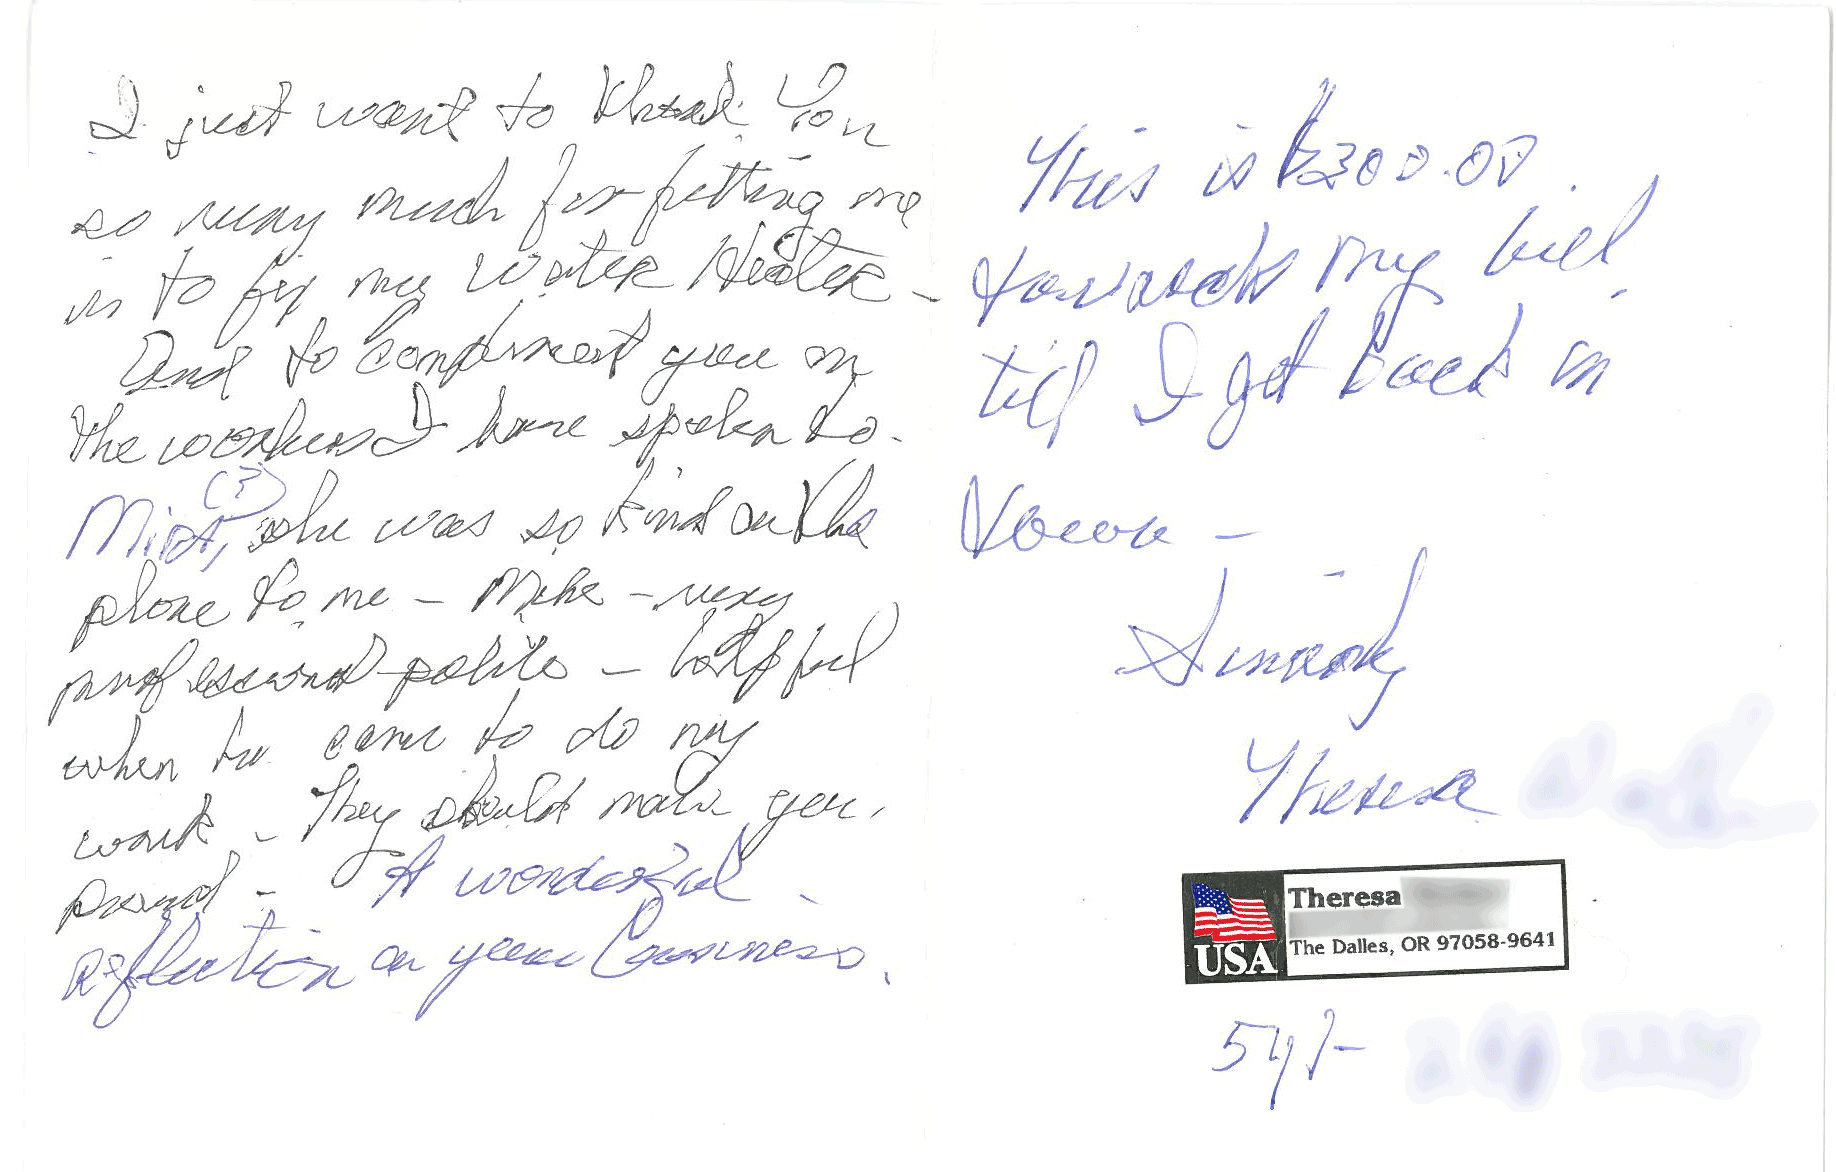 I just want to thank You
so very much for fitting me
in to fix my Water Heater -
And to compliment you on
the workers I have spoken to.
(?)
she was so kind on the
phone to me - Mike - very
professional - polite - helpful
when he came to do my
work - They should make you
proud - A wonderful
reflection on your business.
This is $300.00
towards my bill
till I get back in
town -
Sincerely
Theresa
Theresa
The Dalles, OR 97058-9641
USA
541-